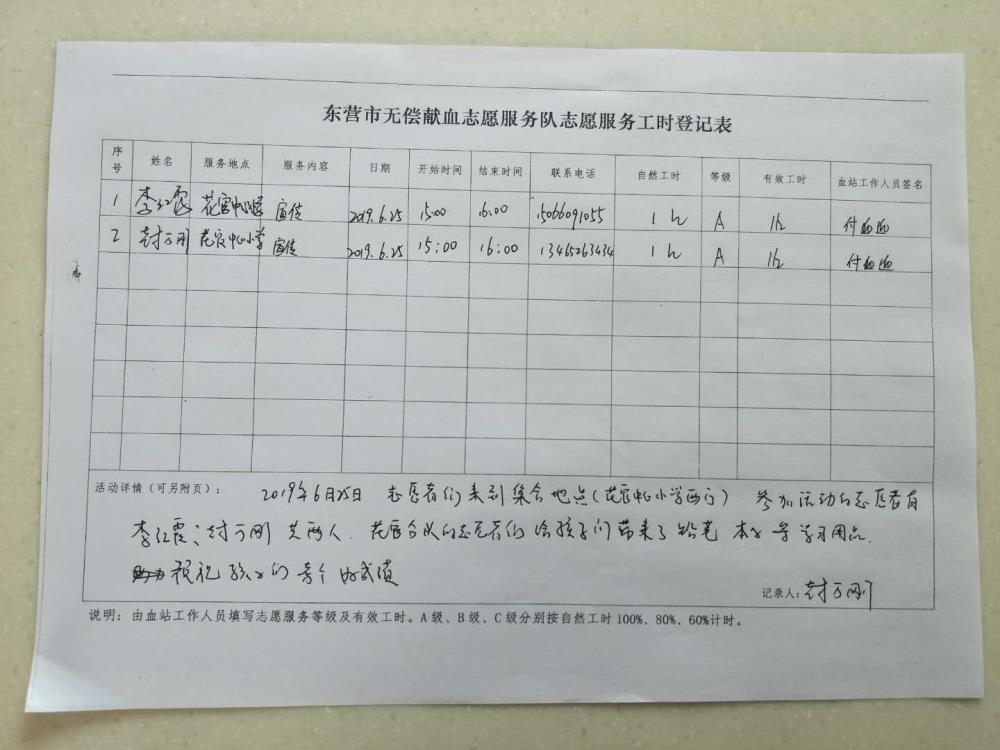 东营市无偿献血志愿服务队志愿服务工时登记表
序号 姓名 服务地点 服务内容 日期 开始时间 结束时间 联系电话 自然工时 等级 有效工时 血站工作人员签名
1 李红霞 花官中心小学 宣传 2019.6.25 15:00 16:00 15066091055 1h A 1h
2 封万刚 花官中心小学 宣传 2019.6.25 15:00 16:00 13465263434 1h A 1h
活动详情(可另附页): 2019年6月25日 志愿者们来到集合地点(花官中心小学西门) 参加活动的志愿者有
李红霞、封万刚 共两人. 花官分队的志愿者们给孩子们带来了铅笔 本子等学习用品.
祝孩子们考个好成绩
记录人:封万刚
说明:由血站工作人员填写志愿服务等级及有效工时。A级、B级、C级分别按自然工时100%、80%、60%计时。